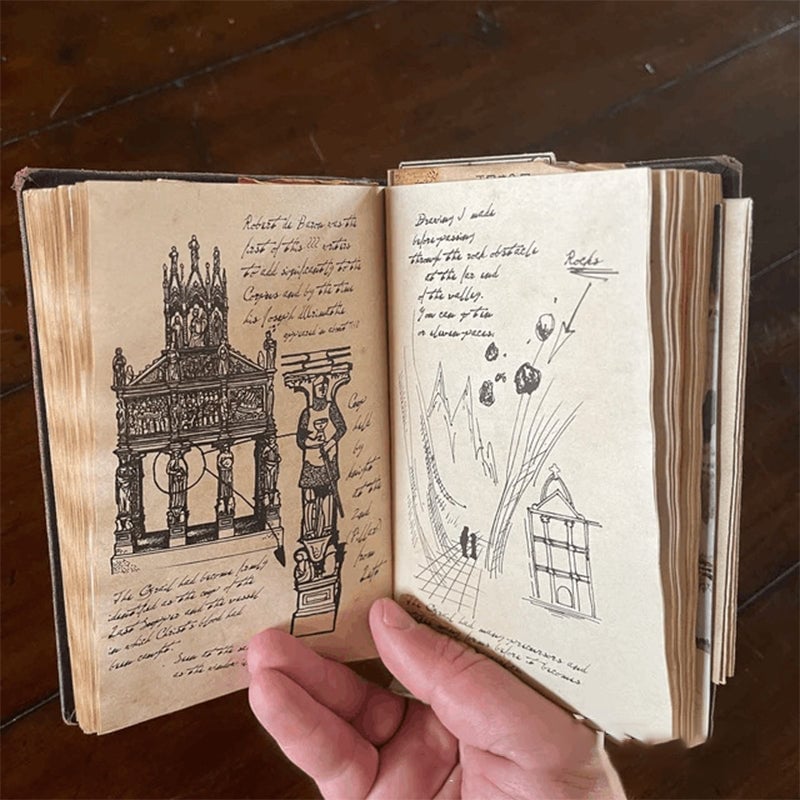 Robert de Boron was the
first of this ??? writers
to add significantly to the
Corpus and by the time
his Joseph
appeared in about
Cup
held
by
knight
at the
2nd
(Pillar)
from
Left
The Grail had become firmly
identified as the cup of the
Last Supper and the vessel
in which Christ's blood had
been caught.
Seen to the
as the
Drawing I made
before passing
through the rock obstacle
at the far end
of the valley.
You can go ten
or eleven paces.
Rocks
or
The Grail had many precursors and
forms before it becomes